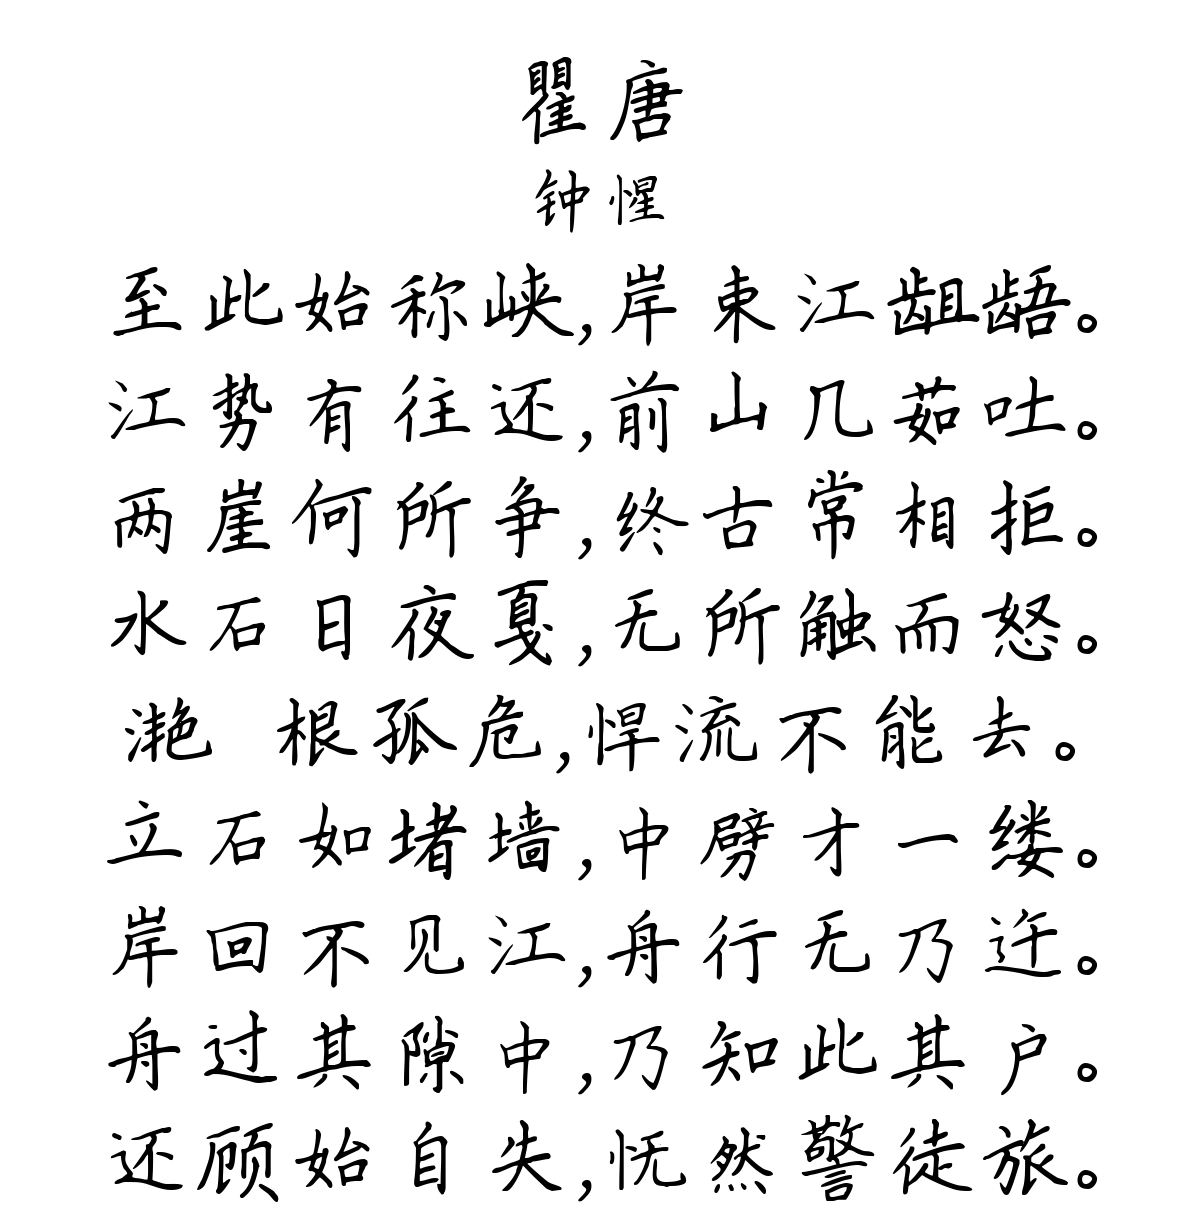 瞿唐
钟惺
至此始称峡,岸束江龃龉。
江势有往还,前山几茹吐。
两崖何所争,终古常相拒。
水石日夜戛,无所触而怒。
滟 根孤危,悍流不能去。
立石如堵墙,中劈才一缕。
岸回不见江,舟行无乃迕。
舟过其隙中,乃知此其户。
还顾始自失,怃然警徒旅。